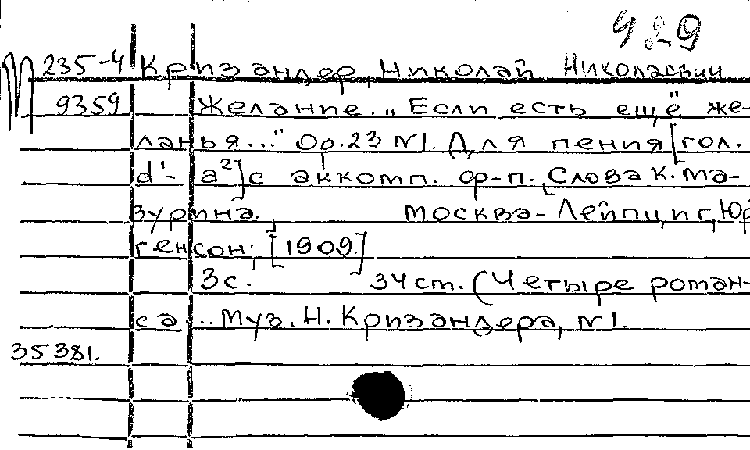 929
М 235-4 Кризандер, Николай Николаевич
9359 Желание. „Если есть ещё же-
ланья..." Op.23 №1. Для пения [гол.
d¹- a²] с аккомп. ф-п. Слова К. Ма-
зурина. Москва-Лейпциг, Юр
генсон, [1909]
3с. 34 cm. (Четыре роман-
са... Муз. Н. Кризандера, №1.
35381.